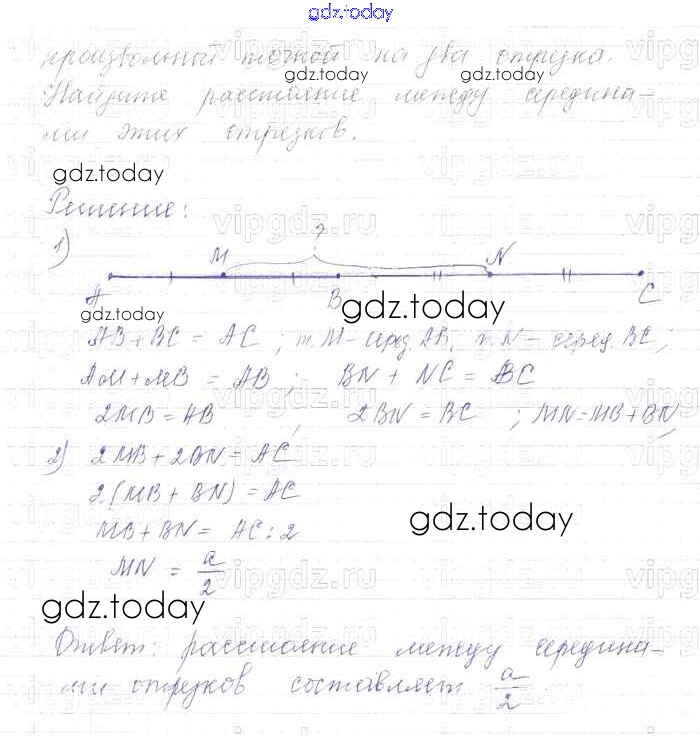 gdz.today
произвольной точкой на два отрезка.
gdz.today gdz.today
Найдите расстояние между середина-
ми этих отрезков.
gdz.today
Решение:
vipgdz.ru
?
1) M N
A B C
gdz.today gdz.today
AB + BC = AC ; т. M - серед. AB, т. N - серед. BC ;
AM + MB = AB ; BN + NC = BC
2MB = AB , 2BN = BC ; MN = MB + BN,
2) 2MB + 2BN = AC
2(MB + BN) = AC
MB + BN = AC : 2
gdz.today
MN = a/2
gdz.today
Ответ: расстояние между середина-
ми отрезков составляет a/2